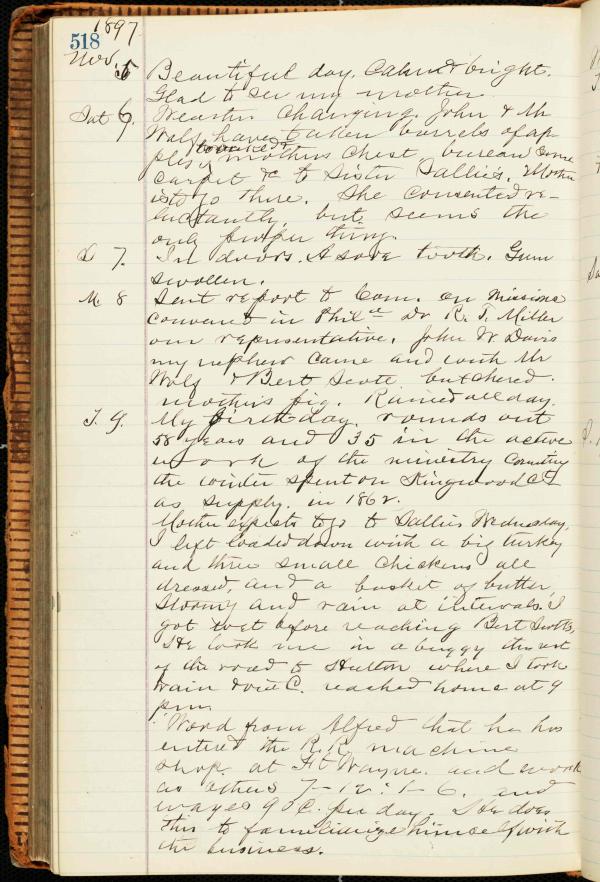 518
1897
Nov. 5 Beautiful day. Calm & bright.
Glad to see my mother.
Sat 6. Weather changing. John & Mr
Wolf have taken barrels of ap
ples, mothers chest, bureau some
carpet &c to Sister Sallie's. Mother
is to go there. She consented re-
luctantly, but seems the
only proper thing.
S 7. In doors. A sore tooth. Gum
swollen.
M. 8 Sent report to Com. on Missions
convened in Phila Dr R. T. Miller
our representative. John W. Davis
my nephew came and with Mr
Wolf & Bert Scott butchered
mother's pig. Rained all day.
T. 9. My birthday. rounds out
58 years and 35 in the active
work of the ministry Counting
the winter spent on Kingwood Ct
as supply. in 1862.
Mother expects to go to Sallies Wednesday.
I left loaded down with a big turkey
and three small chickens all
dressed, and a basket of butter.
Stormy and rain at intervals. I
got wet before reaching Bert Scotts,
He took me in a buggy the rest
of the road to Hutton where I took
train reached home at 9
pm.
Word from Alfred that he has
entered the R.R. machine
shop at Ft Wayne. and work
as others 7-12: 1-6. and
wages 90 c. per day. He does
this to familiarize himself with
the business.